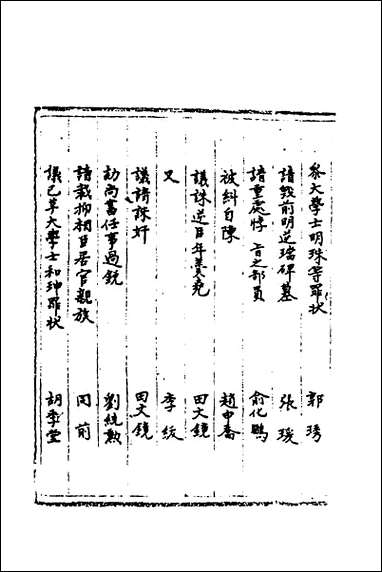 叅大學士明珠等罪狀 郭琇
請毀前明逆璫碑墓 張瑗
請重處悖旨之部員 俞化鵬
被糾自陳 趙申喬
議誅逆臣年羹堯 田文鏡
又 李紱
議請誅奸 田文鏡
劾尚書任事過銳 劉統勳
請裁抑相臣居官親族 同前
議已革大學士和珅罪狀 胡季堂